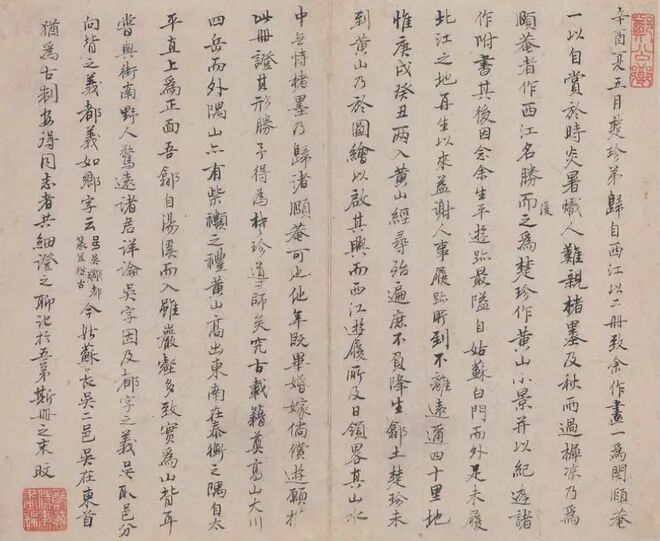 鄭公鄉
辛酉夏五月楚珍弟歸自西江以二冊致余作畫一為閔頤菴
一以自賞於時炎暑熾人難親楮墨及秋雨過樨凉乃為
頤菴者作西江名勝而復之為楚珍作黄山小景并以紀遊諸
作附書其後因念余生平遊跡最隘自姑蘇白門而外足未履
北江之地再生以來益謝人事履跡所到不離遠邇四十里地
惟庚戌癸丑两入黄山經尋殆遍庶不負降生鄉土楚珍未
到黄山乃於圖繪以啟其興而西江遊履所及日領畧其山水
中無恃楮墨乃歸諸頤菴可也他年既畢婚嫁倘償遊願於
此冊證其形勝予得為楚珍導師矣究古載籍真高山大川
四岳而外隅山亦有柴禷之禮黄山高出東南在泰衡之隅自太
平直上為正面吾鄉自湯溪而入雖巖壑多致實為山背耳
嘗與街南野人驚遠諸君詳論吳字因及都字之義吳取邑分
向背之義都義如鄉字云吕吳鄉都篆宜從古今姑蘇長吳二邑吳在東首
猶為古制安得同志者共細證之聊記於吾弟斯冊之末旼